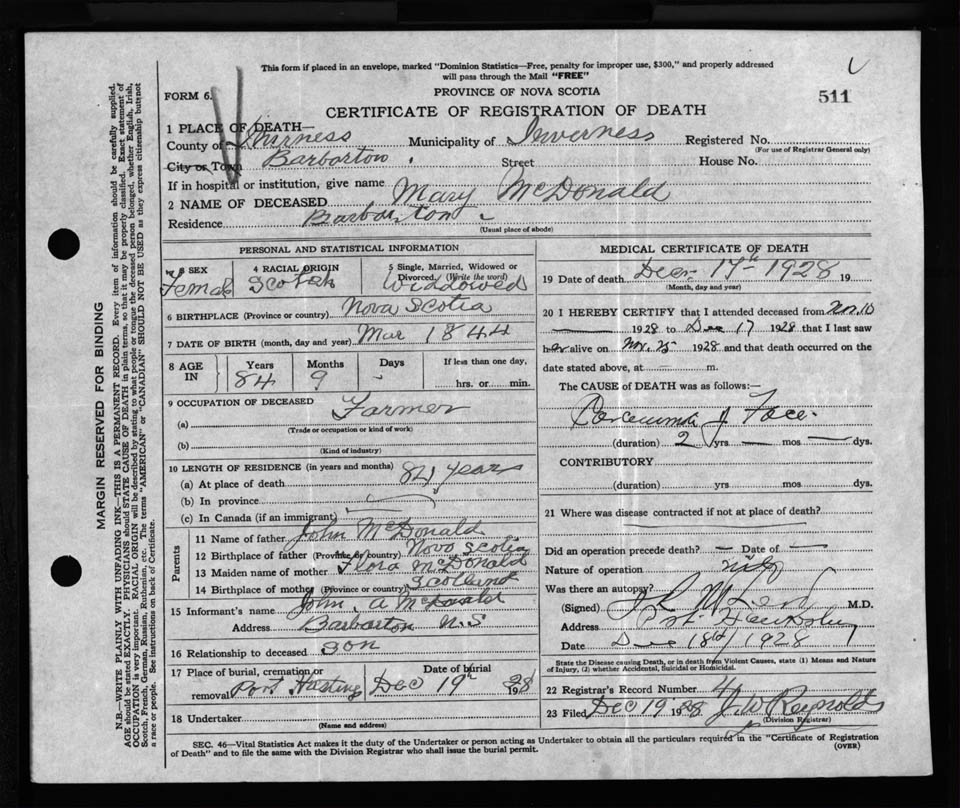 This form if placed in an envelope, marked "Dominion Statistics—Free, penalty for improper use, $300," and properly addressed
will pass through the Mail "FREE"
FORM 6.
PROVINCE OF NOVA SCOTIA
511
CERTIFICATE OF REGISTRATION OF DEATH
1 PLACE OF DEATH—
County of Inverness Municipality of Inverness Registered No.
(For use of Registrar General only)
City or Town Barbarton. Street House No.
If in hospital or institution, give name
2 NAME OF DECEASED Mary McDonald
Residence Barbarton
(Usual place of abode)
PERSONAL AND STATISTICAL INFORMATION
3 SEX 4 RACIAL ORIGIN 5 Single, Married, Widowed or
Divorced. (Write the word)
Female Scotch Widdowed
6 BIRTHPLACE (Province or country) Nova Scotia
7 DATE OF BIRTH (month, day and year) Mar 1844
8 AGE IN Years Months Days If less than one day,
84 9 - hrs. or min.
9 OCCUPATION OF DECEASED Farmer
(a)
(Trade or occupation or kind of work)
(b)
(Kind of industry)
10 LENGTH OF RESIDENCE (in years and months)
(a) At place of death 84 years
(b) In province
(c) In Canada (if an immigrant)
Parents
11 Name of father John McDonald
12 Birthplace of father (Province or country) Nova Scotia
13 Maiden name of mother Flora McDonald
14 Birthplace of mother (Province or country) Scotland
15 Informant's name John A McDonald
Address Barbarton N.S
16 Relationship to deceased Son
17 Place of burial, cremation or Date of burial
removal Port Hastings Dec 19th 1928
18 Undertaker
(Name and address)
MEDICAL CERTIFICATE OF DEATH
19 Date of death Dec 17th 1928 19
(Month, day and year)
20 I HEREBY CERTIFY that I attended deceased from Nov. 10
1928 to Dec 17 1928 that I last saw
her alive on Nov. 25 1928 and that death occurred on the
date stated above, at m.
The CAUSE of DEATH was as follows:—
Face.
(duration) 2 yrs — mos — dys.
CONTRIBUTORY
(duration) yrs mos dys.
21 Where was disease contracted if not at place of death?
Did an operation precede death? — Date of —
Nature of operation
Was there an autopsy?
(Signed) M.D.
Address Port Hawkesbury
Date Dec 18th 1928
State the Disease causing Death, or in death from Violent Causes, state (1) Means and Nature
of Injury, (2) whether Accidental, Suicidal or Homicidal.
22 Registrar's Record Number 4
23 Filed Dec 19 1928 J. W Reynolds
(Division Registrar)
SEC. 46—Vital Statistics Act makes it the duty of the Undertaker or person acting as Undertaker to obtain all the particulars required in the "Certificate of Registration
of Death" and to file the same with the Division Registrar who shall issue the burial permit.
(OVER)
MARGIN RESERVED FOR BINDING
N.B.—WRITE PLAINLY WITH UNFADING INK—THIS IS A PERMANENT RECORD. Every item of information should be carefully supplied.
AGE should be stated EXACTLY. PHYSICIANS should STATE CAUSE OF DEATH in plain terms, so that it may be properly classified. Exact statement of
OCCUPATION is very important. RACIAL ORIGIN will be described by stating to what people or tongue the deceased person belonged, whether English, Irish,
Scotch, French, German, Russian, Ruthenian, etc. The terms "AMERICAN" or "CANADIAN" SHOULD NOT BE USED as they express citizenship but not
a race or people. See instructions on back of Certificate.